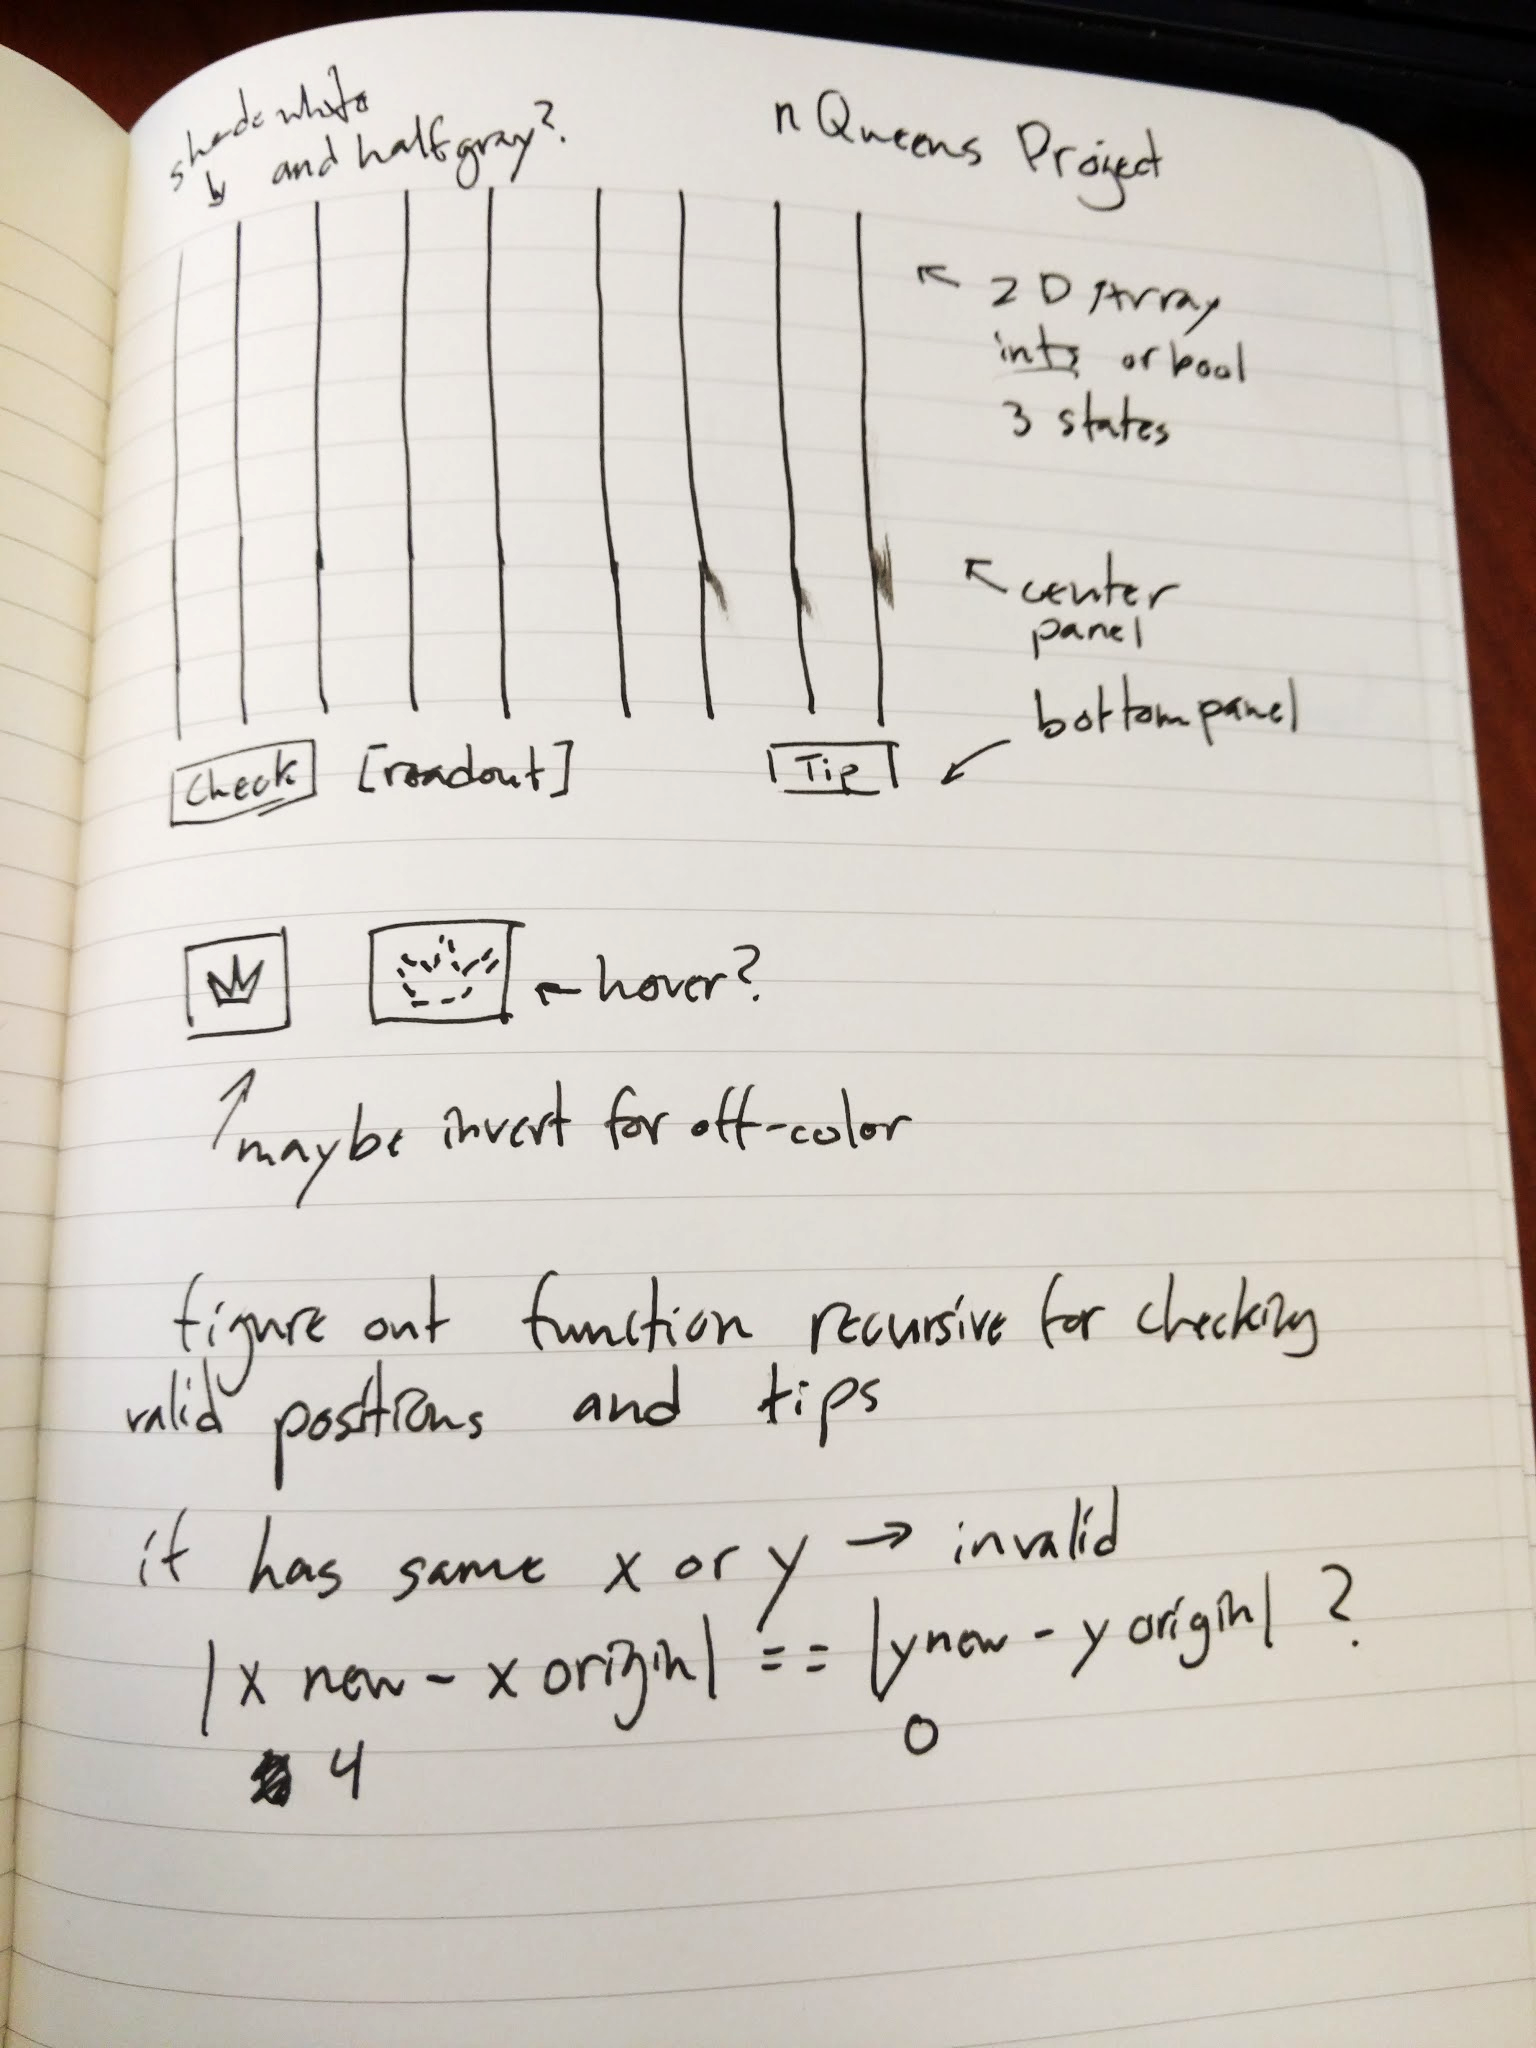 shade white
and half gray?
nQueens Project
2D Array
ints or bool
3 states
center
panel
bottom panel
Check [readout] Tip
hover?
maybe invert for off-color
figure out function recursive for checking
valid positions and tips
if has same x or y → invalid
|x new - x origin| == |y new - y origin| ?
4 0